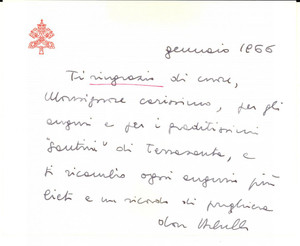 gennaio 1966
Ti ringrazio di cuore,
Monsignore carissimo, per gli
auguri e per i graditissimi
"santini" di Terrasanta, e
ti ricambio ogni augurio più
lieto e un ricordo di preghiera
don